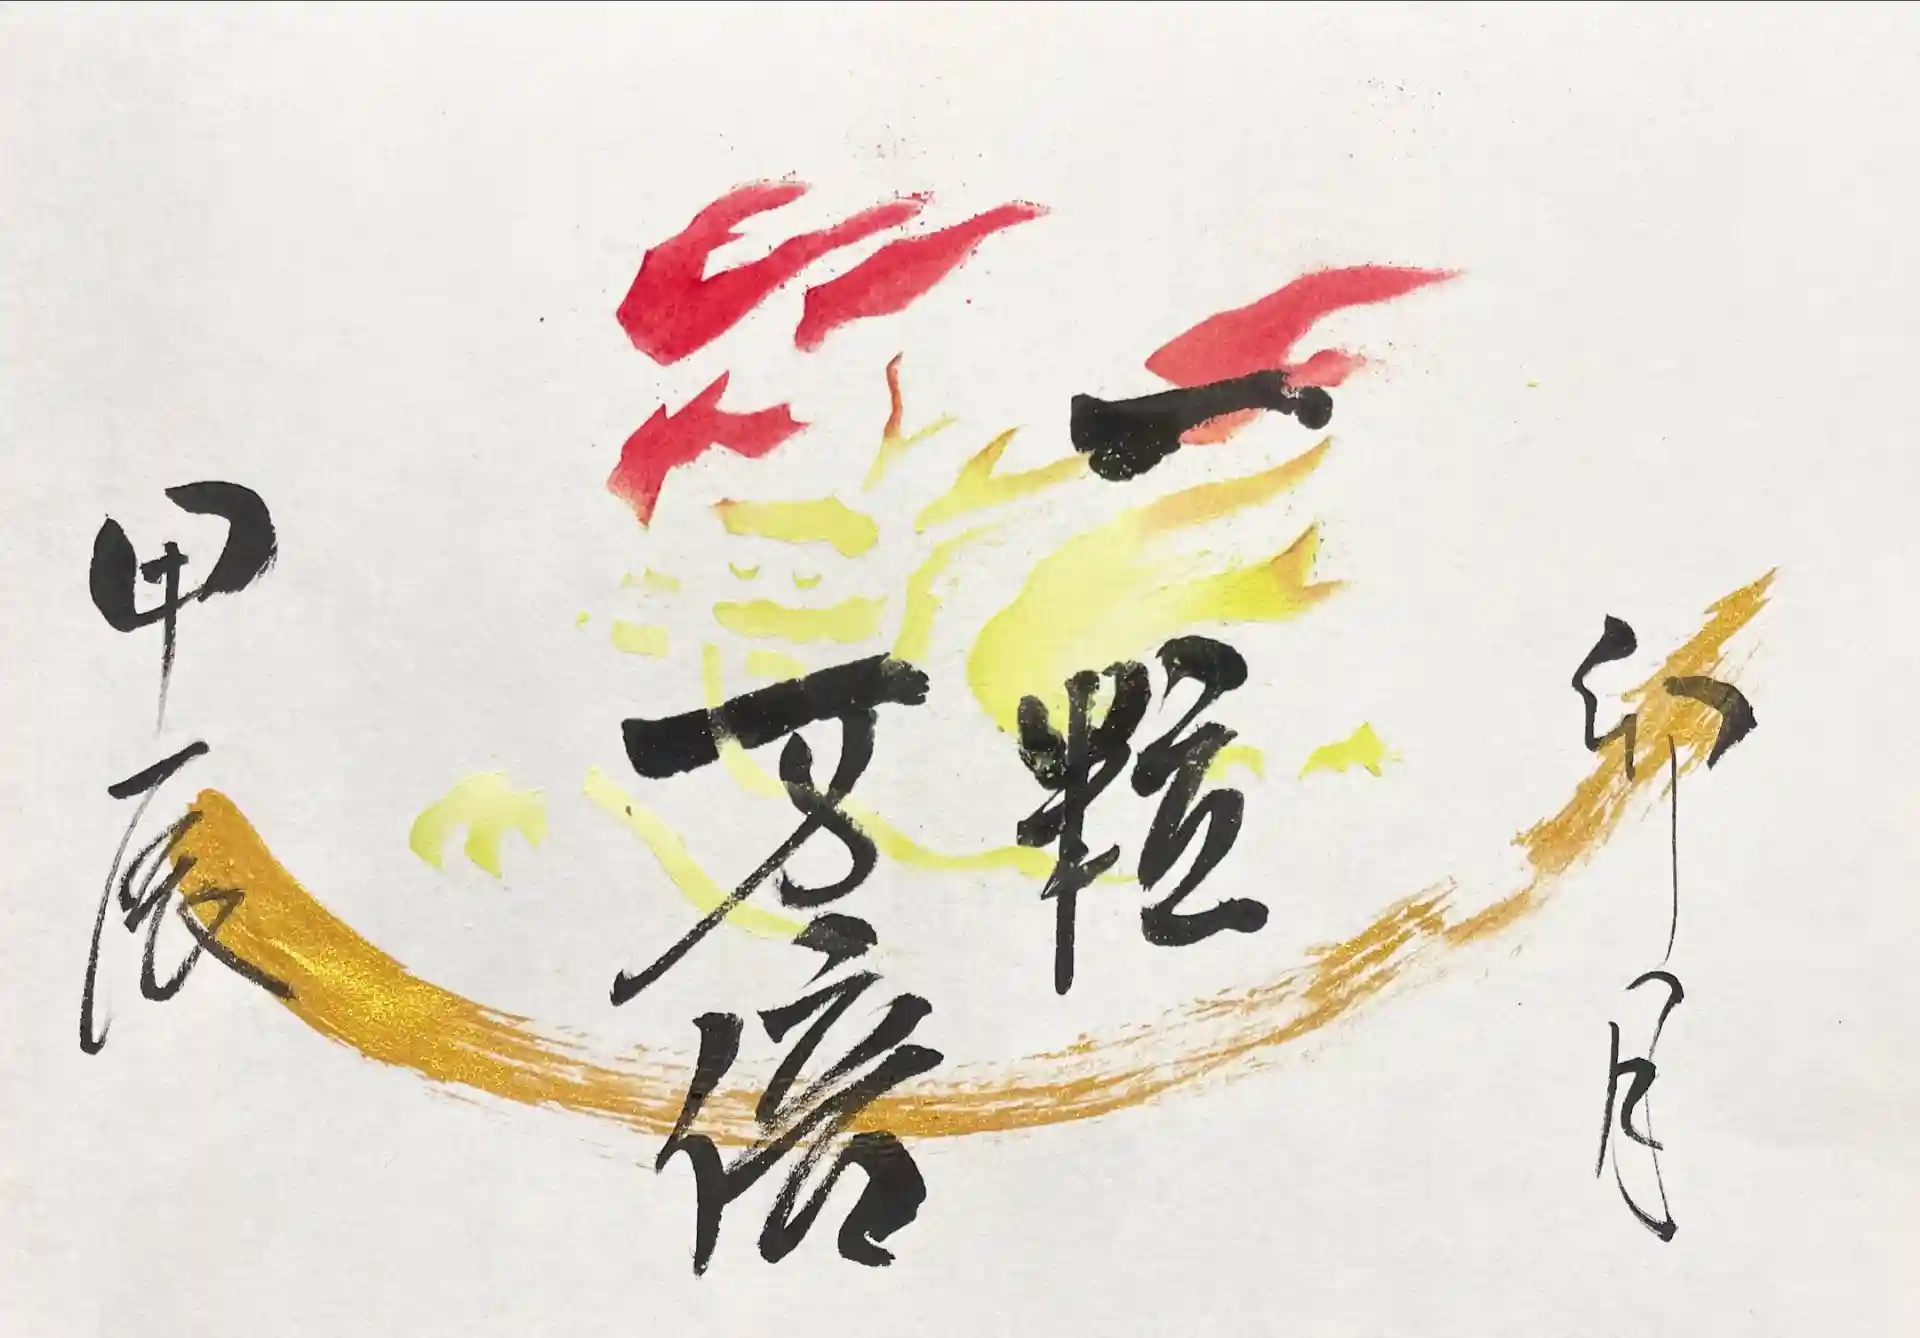 一粒
万倍
卯月
甲辰